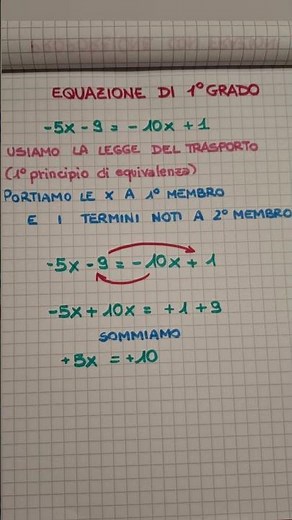 EQUAZIONE DI 1° GRADO
-5x - 9 = - 10x + 1
USIAMO LA LEGGE DEL TRASPORTO
(1° principio di equivalenza)
PORTIAMO LE X A 1° MEMBRO
E I TERMINI NOTI A 2° MEMBRO
-5x - 9 = - 10x + 1
-5x + 10x = +1 + 9
SOMMIAMO
+5x = +10